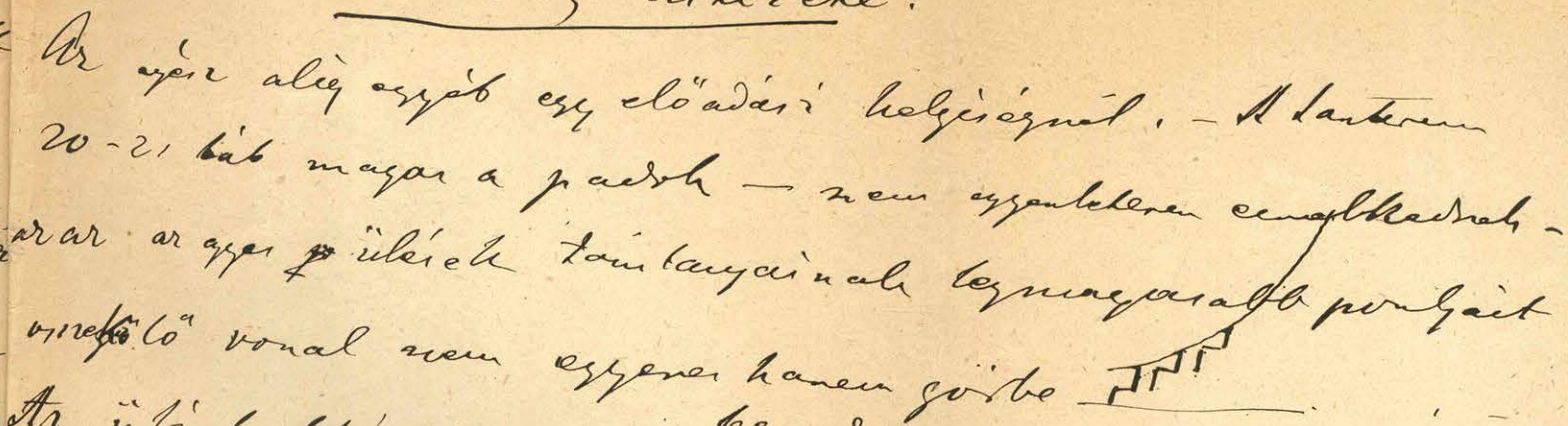 Az egész alig egyéb egy előadási helyiségnél. – A tanterem
20-21 láb magas a padok – nem egyenletesen emelkednek –
azaz az egyes ülések támlányainak legmagasabb pontjait
összekötő vonal nem egyenes hanem görbe
Az